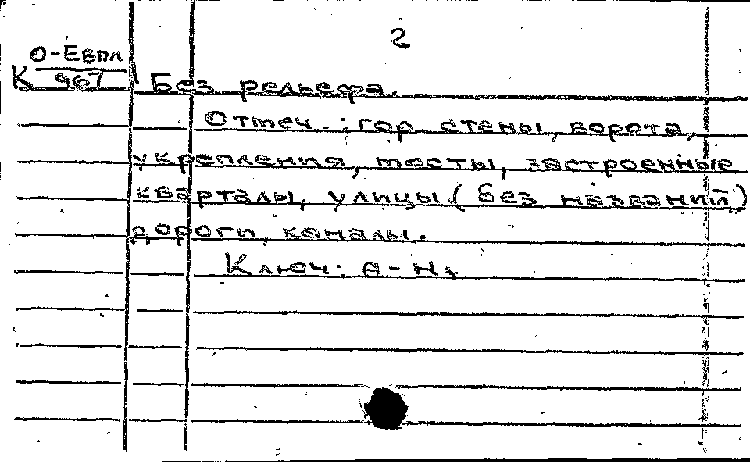 2
О-Евпл
К 967
Без рельефа.
Отмеч.: гор. стены, ворота,
укрепления, мосты, застроенные
кварталы, улицы (без названий)
дороги, каналы.
Ключ: А-Н,